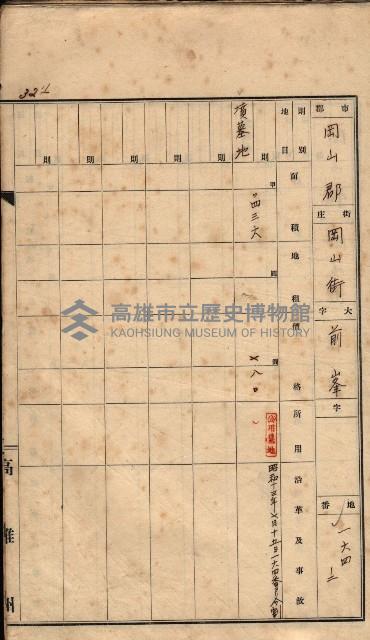 324
市郡 岡山郡 街庄 岡山街 大字 前峯 字 地番 一六四 二
則別 地目 面積 地租 價格 所用沿革及事故
墳墓地 則 甲 四三六 圓 八〇 公用墓地 昭和十 年 月十五日一六四番
則
則
則
則
則
高雄州
高雄市立歷史博物館
KAOHSIUNG MUSEUM OF HISTORY